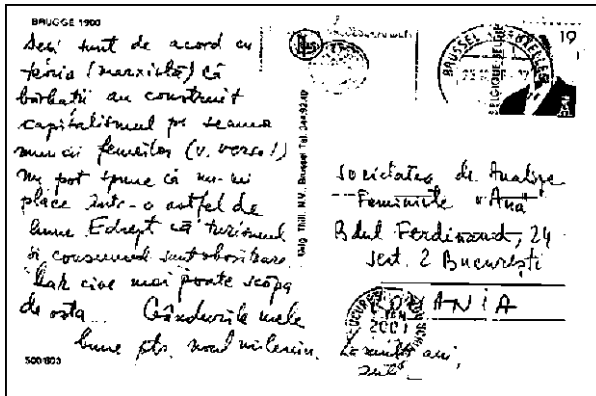 BRUGGE 1900
Deși sunt de acord cu
teoria (marxistă) că
bărbații au construit
capitalismul pe seama
muncii femeilor (v. verso!)
nu pot spune că nu-mi
place într-o astfel de
lume. E drept că turismul
și consumul sunt obositoare.
Dar cine mai poate scăpa
de asta... Gândurile mele
bune ptr. noul mileniu. La mulți ani,
500/803
Uitg. Thill, N.V., Brussel Tel.
BRUSSEL BRUXELLES
BELGIQUE-BELGIË
19
Societatea de Analize
Feministe "Ana"
B.dul Ferdinand, 24
sect. 2 București
ROMANIA
2001